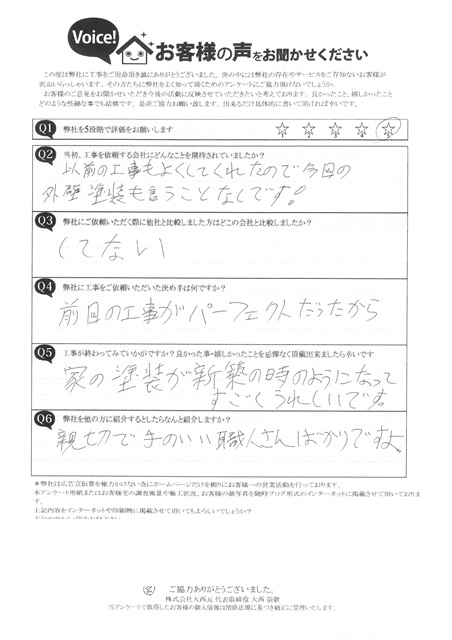 Voice!
お客様の声をお聞かせください
この度は弊社に工事をご用命頂き誠にありがとうございました。世の中には弊社の存在やサービスをご存知ないお客様が
沢山いらっしゃいます。その方たちに弊社をよく知って頂くためのアンケートにご協力頂けないでしょうか。
お客様のご意見をお聞かせ頂き今後の活動に反映させていただきたいと考えております。良かったこと、嬉しかったこと
どのような些細な事でも結構です。是非ご協力お願い致します。出来るだけ具体的に書いて頂ければ幸いです。
Q1 弊社を5段階で評価をお願いします
1 2 3 4 5
Q2 当初、工事を依頼する会社にどんなことを期待されていましたか?
以前の工事もよくしてくれたので今回の
外壁塗装も言うことなしです!
Q3 弊社にご依頼いただく際に他社と比較しました方はどこの会社と比較しましたか?
してない
Q4 弊社に工事をご依頼いただいた決め手は何ですか?
前回の工事がパーフェクトだったから
Q5 工事が終わってみていかがですか?良かった事・嬉しかったことを忌憚なく頂戴出来ましたら幸いです
家の塗装が新築の時のようになって
すごくうれしいです。
Q6 弊社を他の方に紹介するとしたらなんと紹介しますか?
親切で手のいい職人さんばかりですよ。
*弊社は広告宣伝費を極力かけない為にホームページだけを頼りにお客様への営業活動を行っております。
本アンケート用紙またはお客様宅の調査風景や施工状況、お客様の顔写真を随時ブログ形式のインターネットに掲載させて頂いております。
上記内容をインターネットや印刷物に掲載させて頂いてもよろしいでしょうか?
ご協力ありがとうございました。
株式会社大西瓦 代表取締役 大西 崇敬
当アンケートで取得したお客様の個人情報は関係法規に基づき適正に管理いたします。